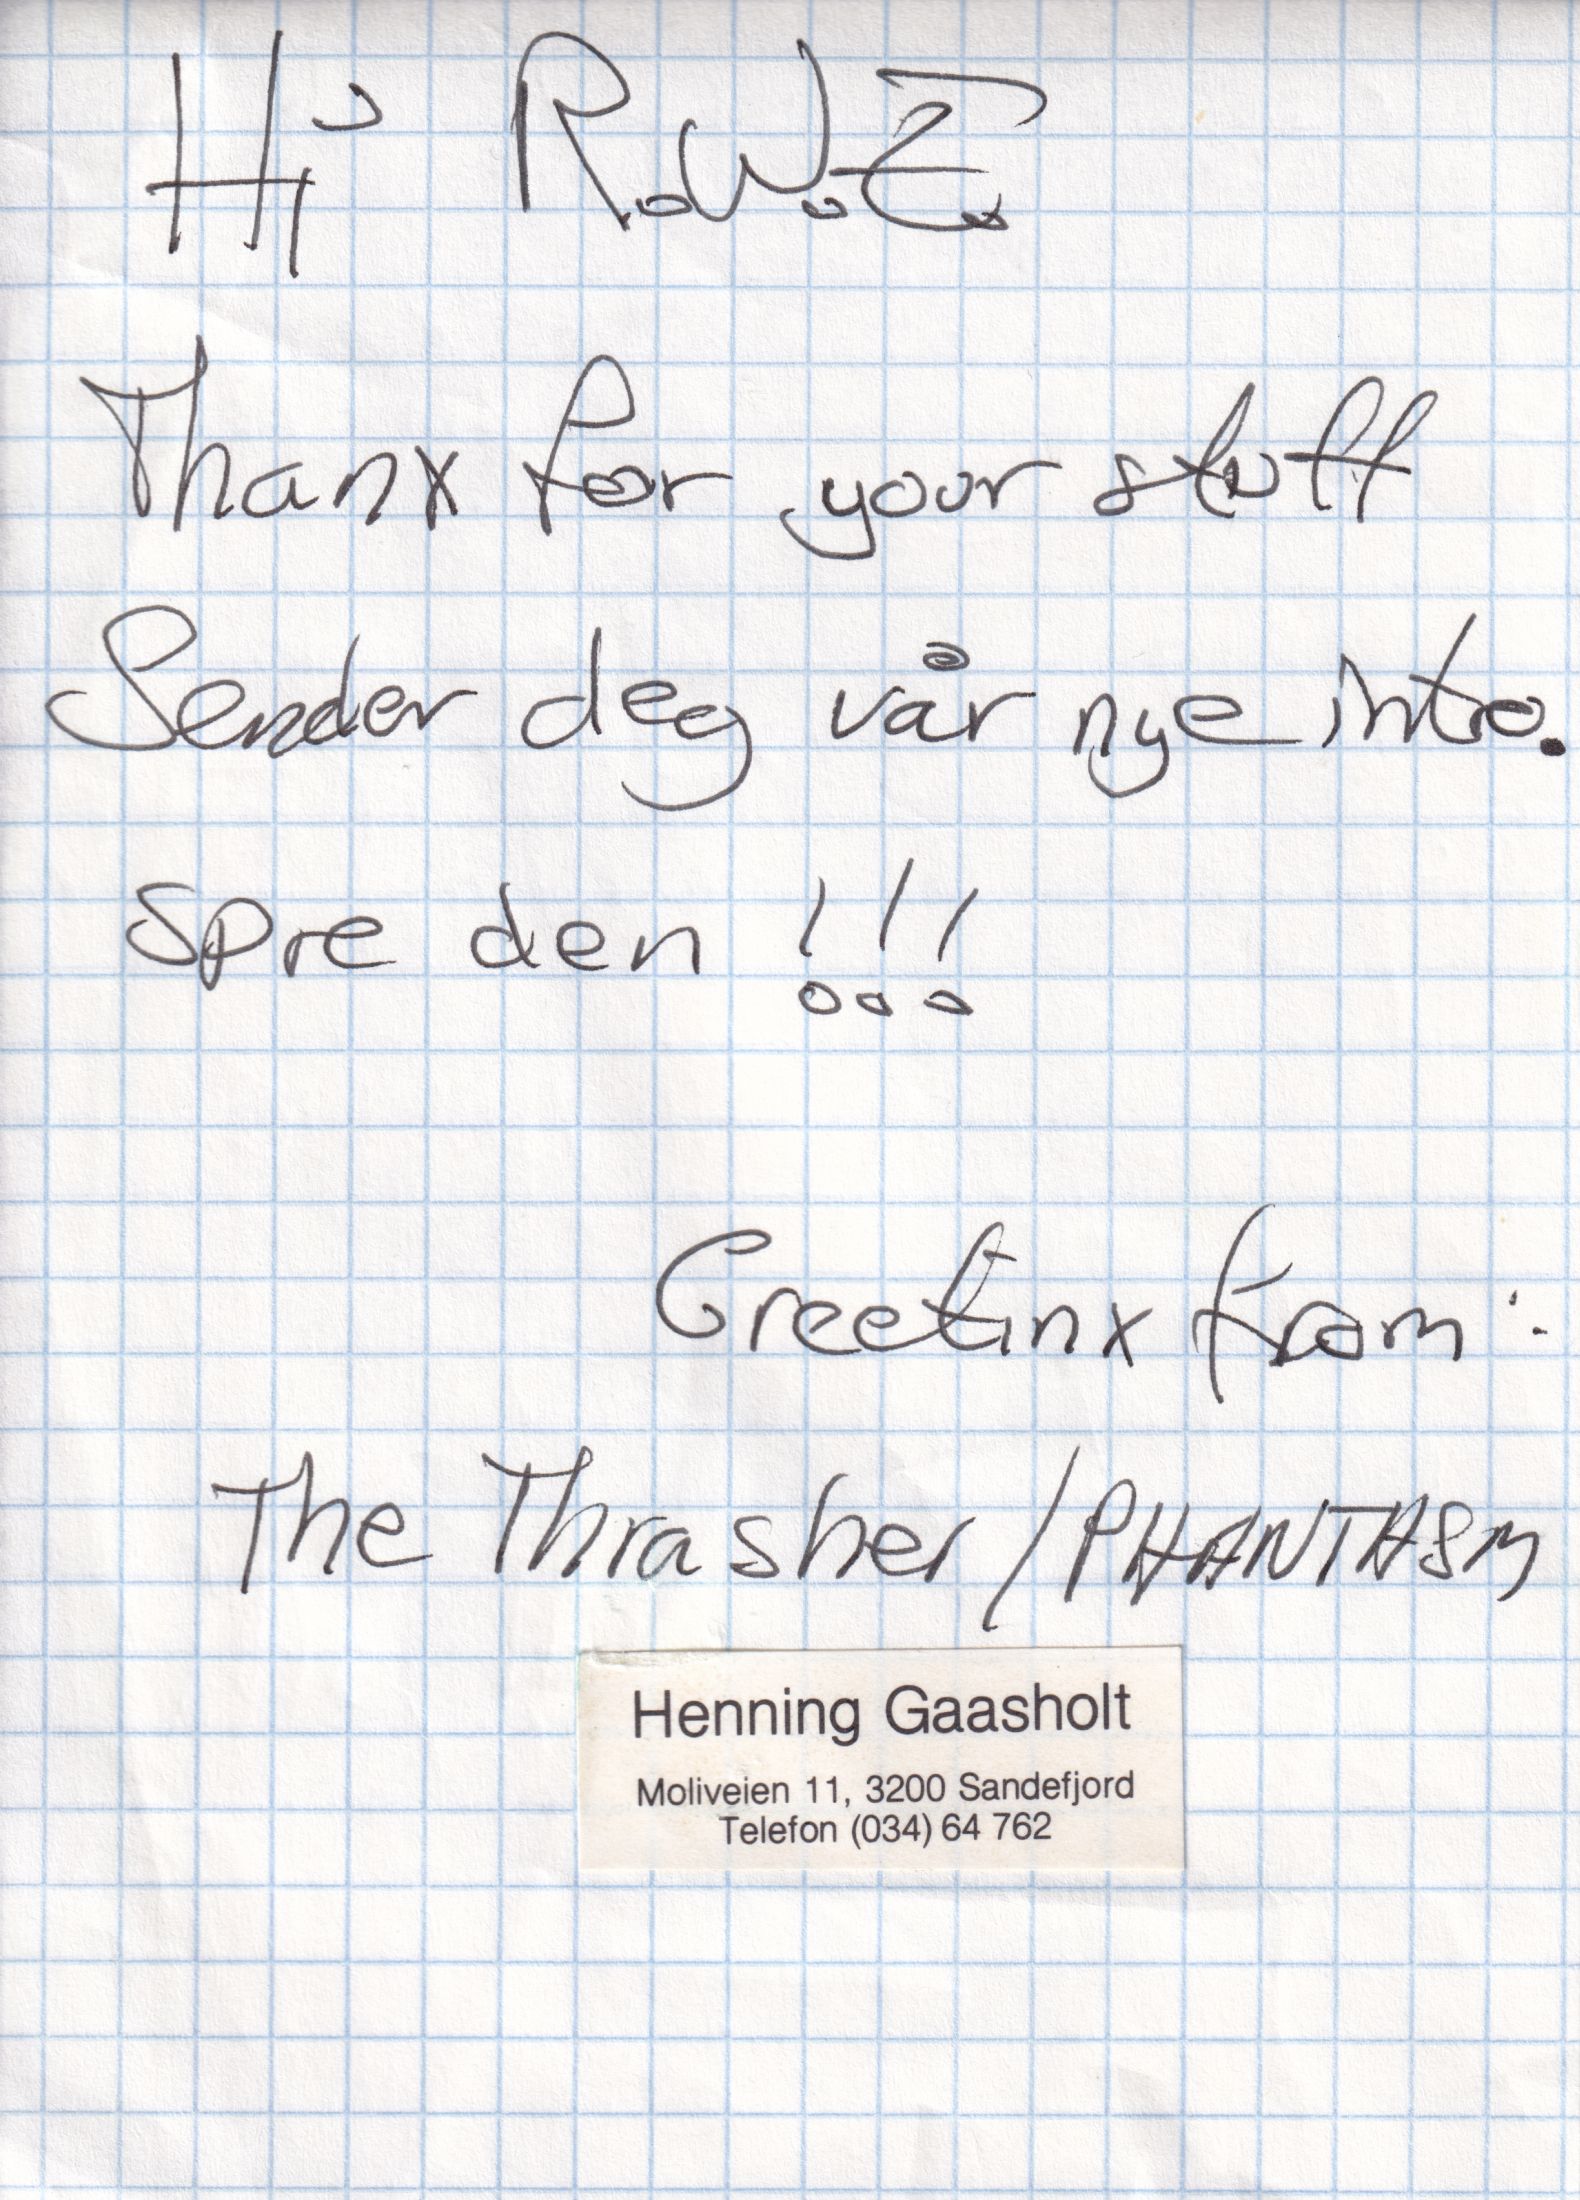 Hi R.W.E.
Thanx for your stuff
Sender deg vår nye intro.
Spre den !!!
Greetinx from:
The Thrasher / PHANTASM
Henning Gaasholt
Moliveien 11, 3200 Sandefjord
Telefon (034) 64 762